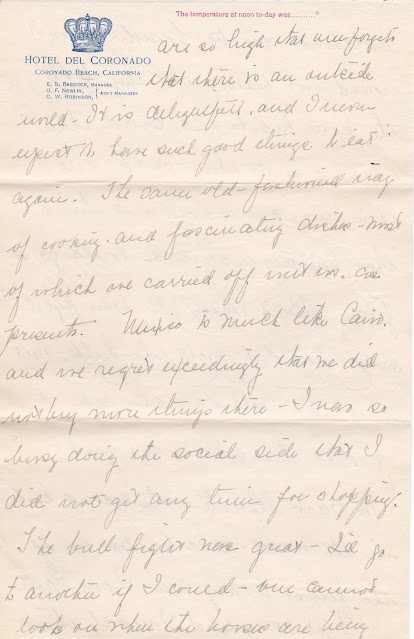 The temperature at noon to-day was.........."
HOTEL DEL CORONADO
CORONADO BEACH, CALIFORNIA
E. S. BABCOCK, MANAGER
U. F. NEWLIN,
G. W. ROBINSON, } ASS'T MANAGERS
are so high that one forgets
that there is an outside
world - It is delightful. and I never
expect to have such good things to eat
again. The same old-fashioned way
of cooking. and fascinating dishes - most
of which are carried off with us. as
presents. Mexico is much like Cairo.
and we regret exceedingly that we did
not buy more things there - I was so
busy doing the social side that I
did not get any time for shopping.
The bull fights were great - I'd go
to another if I could - one cannot
look on when the horses are being